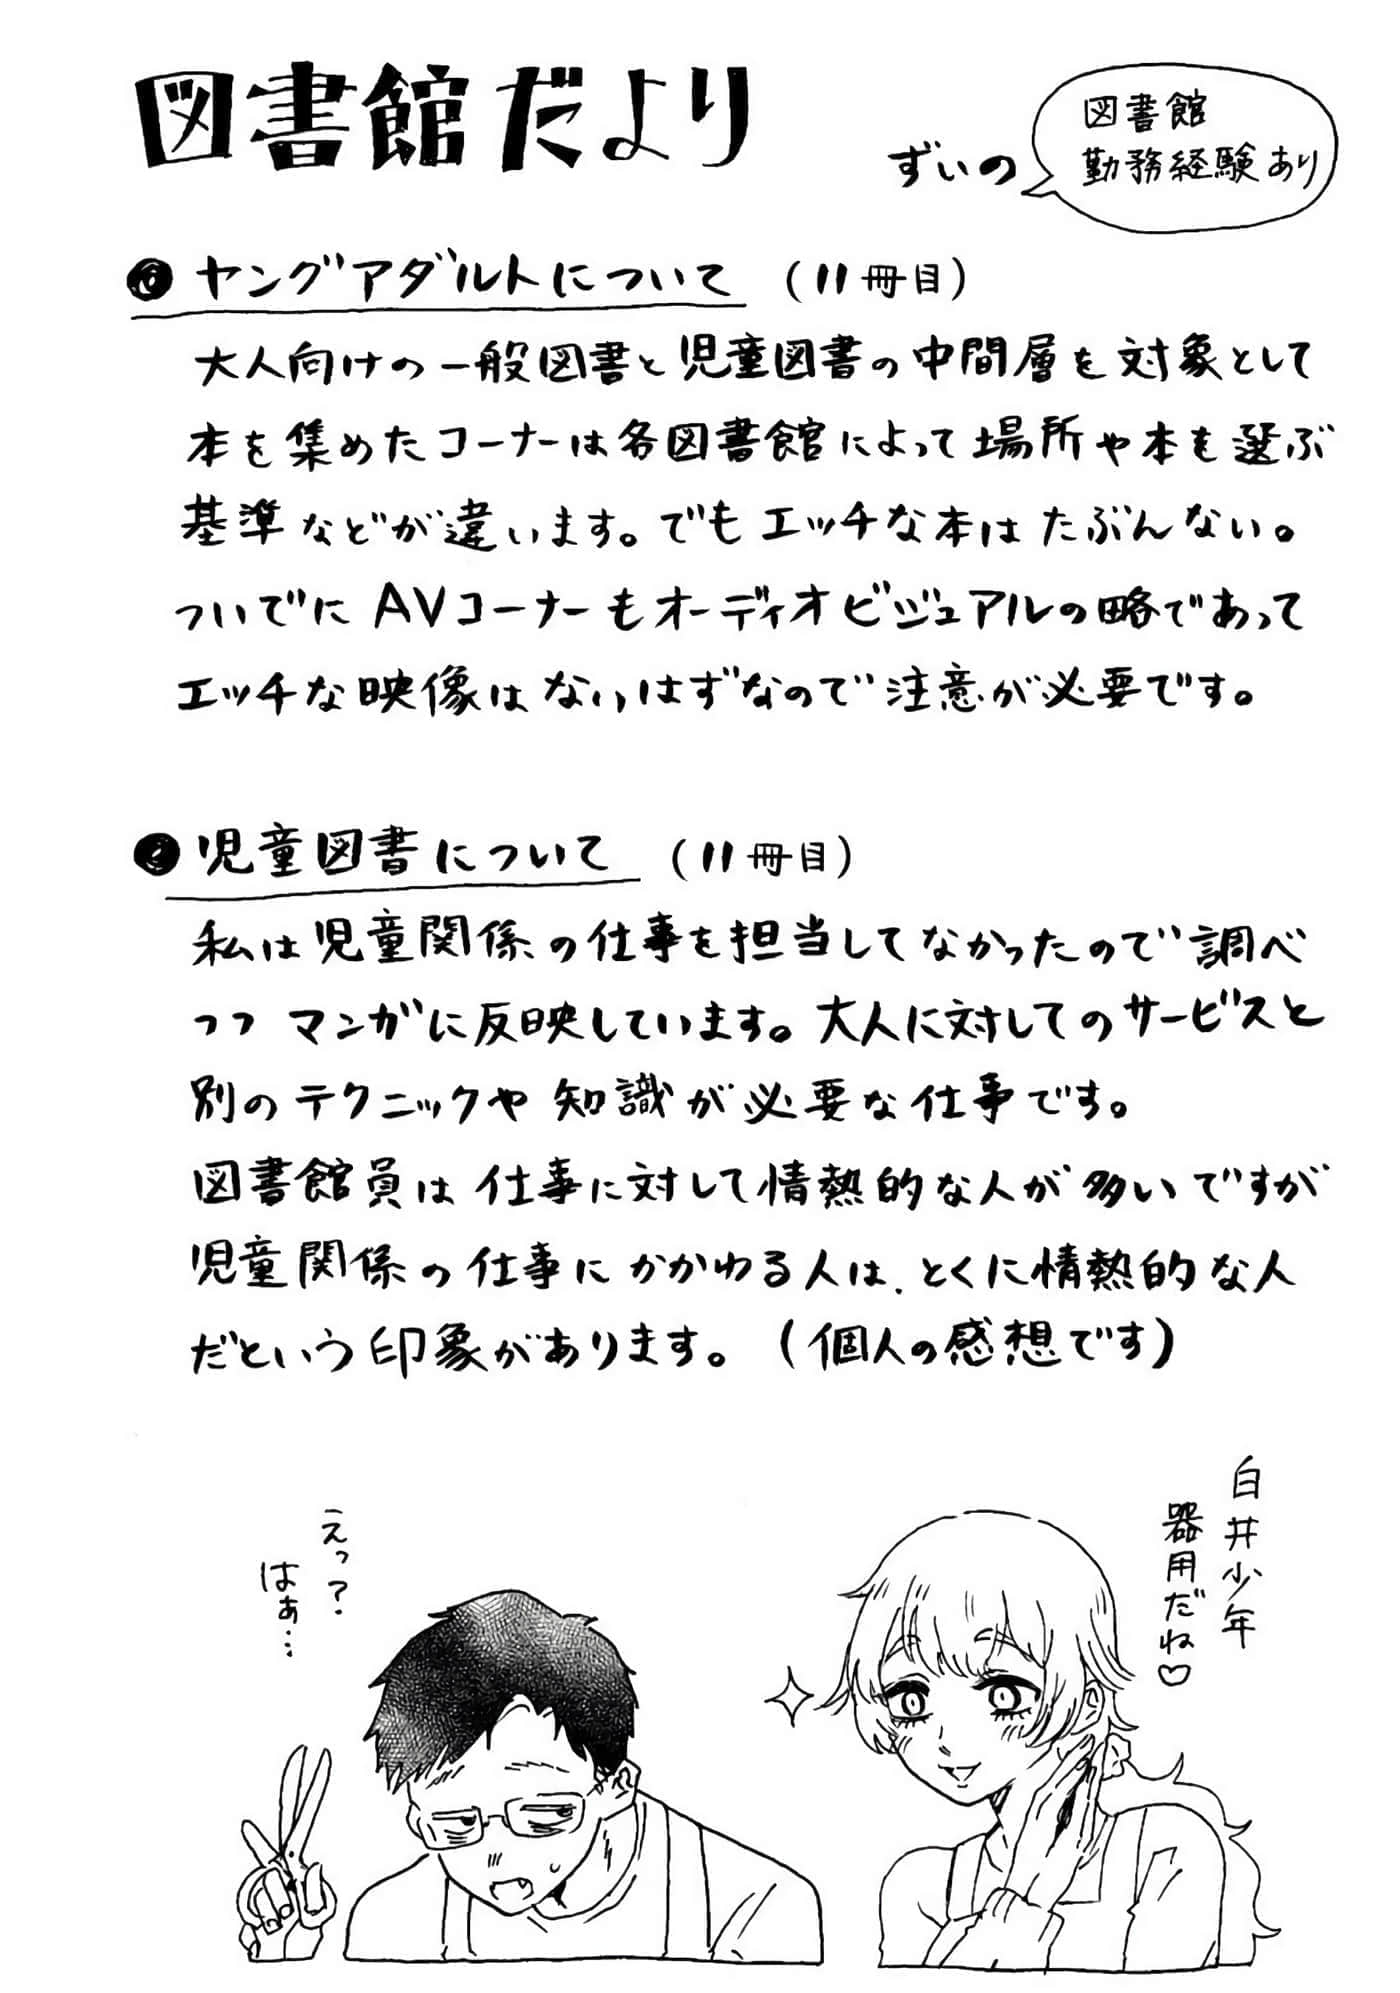 図書館だより
ずいの
図書館
勤務経験あり
ヤングアダルトについて (11冊目)
大人向けの一般図書と児童図書の中間層を対象として
本を集めたコーナーは各図書館によって場所や本を選ぶ
基準などが違います。でもエッチな本はたぶんない。
ついでにAVコーナーもオーディオビジュアルの略であって
エッチな映像はないはずなので注意が必要です。
児童図書について (11冊目)
私は児童関係の仕事を担当してなかったので調べ
つつマンガに反映しています。大人に対してのサービスと
別のテクニックや知識が必要な仕事です。
図書館員は仕事に対して情熱的な人が多いですが
児童関係の仕事にかかわる人は、とくに情熱的な人
だという印象があります。(個人の感想です)
白井少年
器用だね♡
えっ?
はぁ…